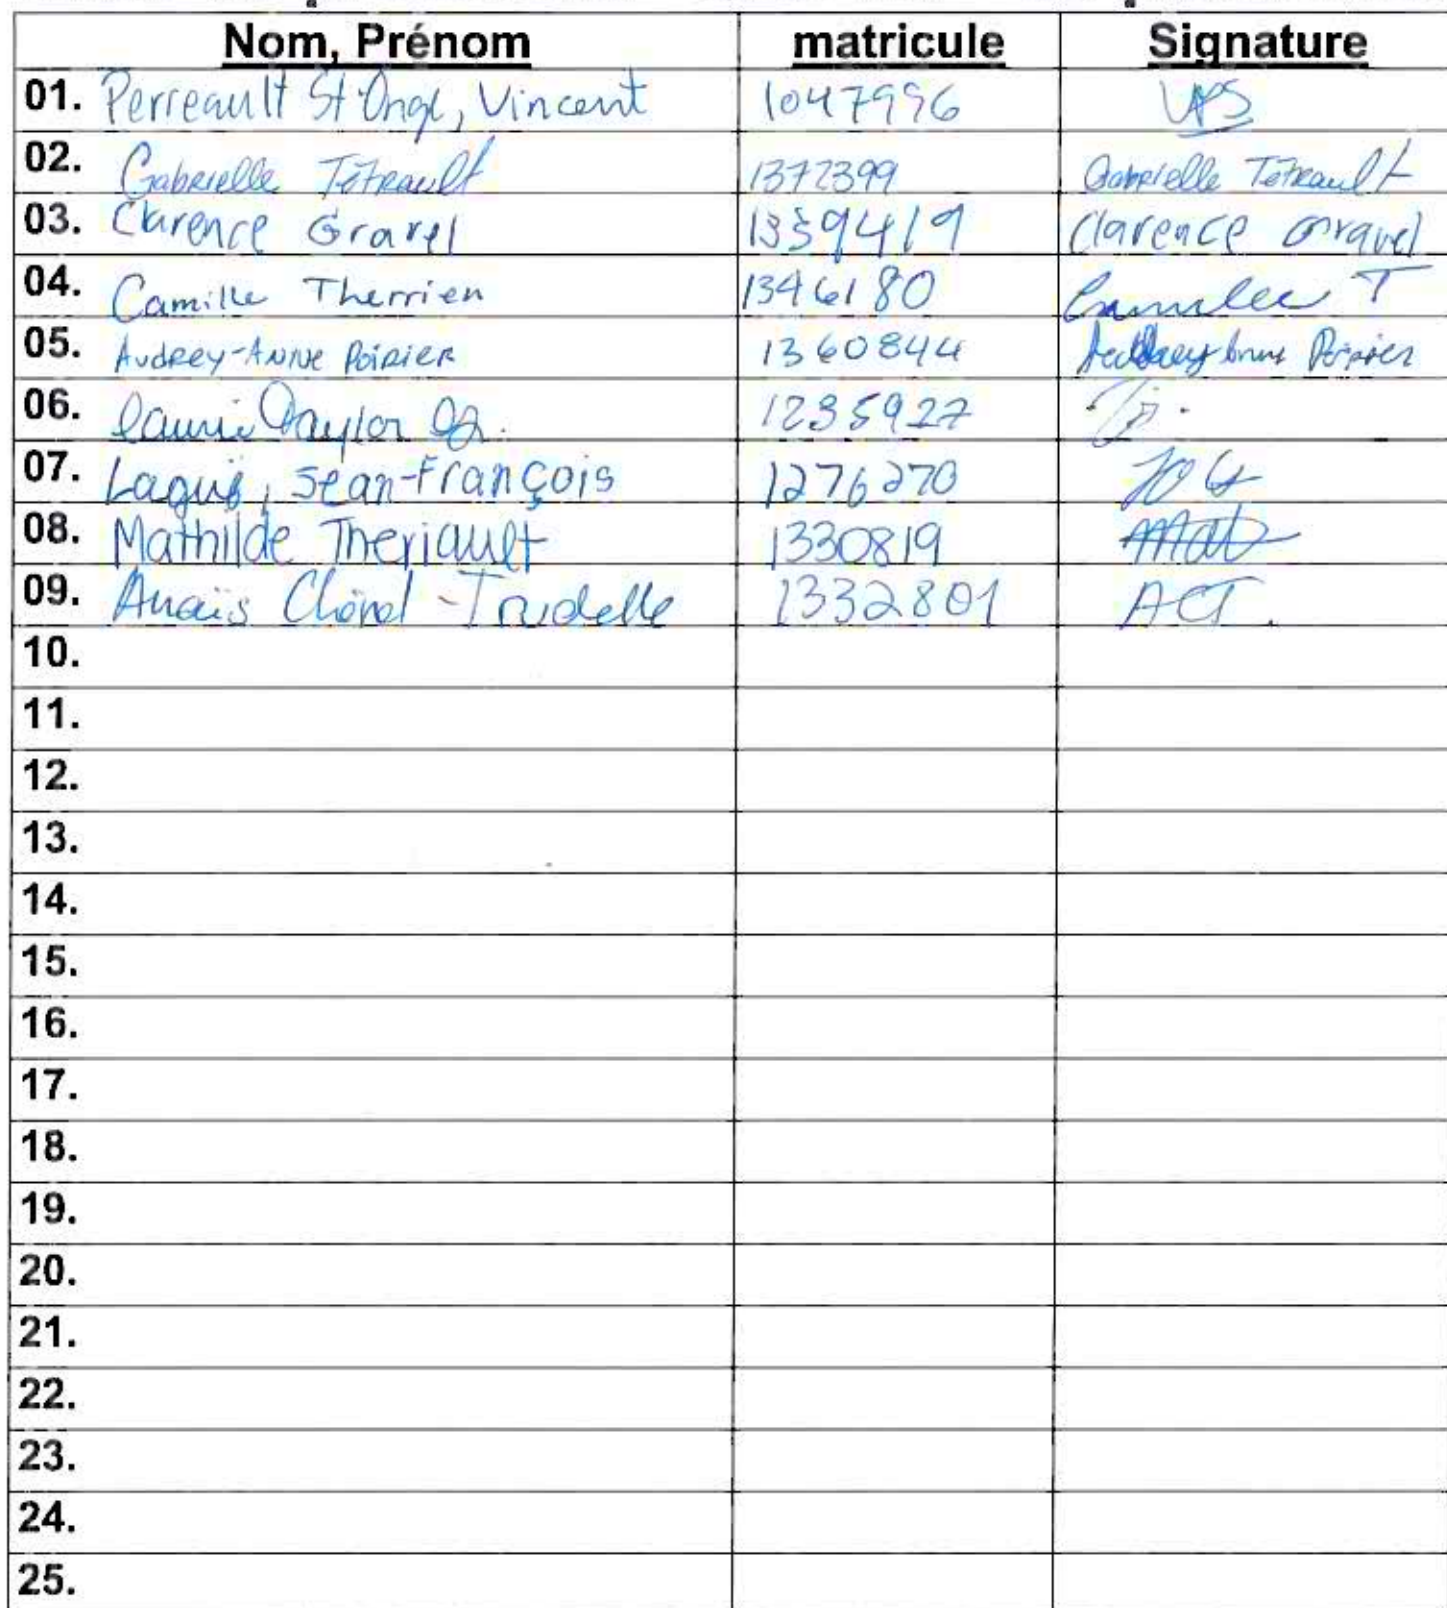 Nom, Prénom matricule Signature
01. Perreault St-Onge, Vincent 1047996 VPS
02. Gabrielle Tétrault 1372399 Gabrielle Tétrault
03. Clarence Gravel 1359419 Clarence Gravel
04. Camille Therrien 1346180 Camille T
05. Audrey-Anne Poirier 1360844 Audrey-Anne Poirier
06. Laurie Taylor 1235927
07. Laguë, Jean-François 1276270
08. Mathilde Theriault 1330819
09. Anaïs -Trudelle 1332801 ACT.
10.
11.
12.
13.
14.
15.
16.
17.
18.
19.
20.
21.
22.
23.
24.
25.